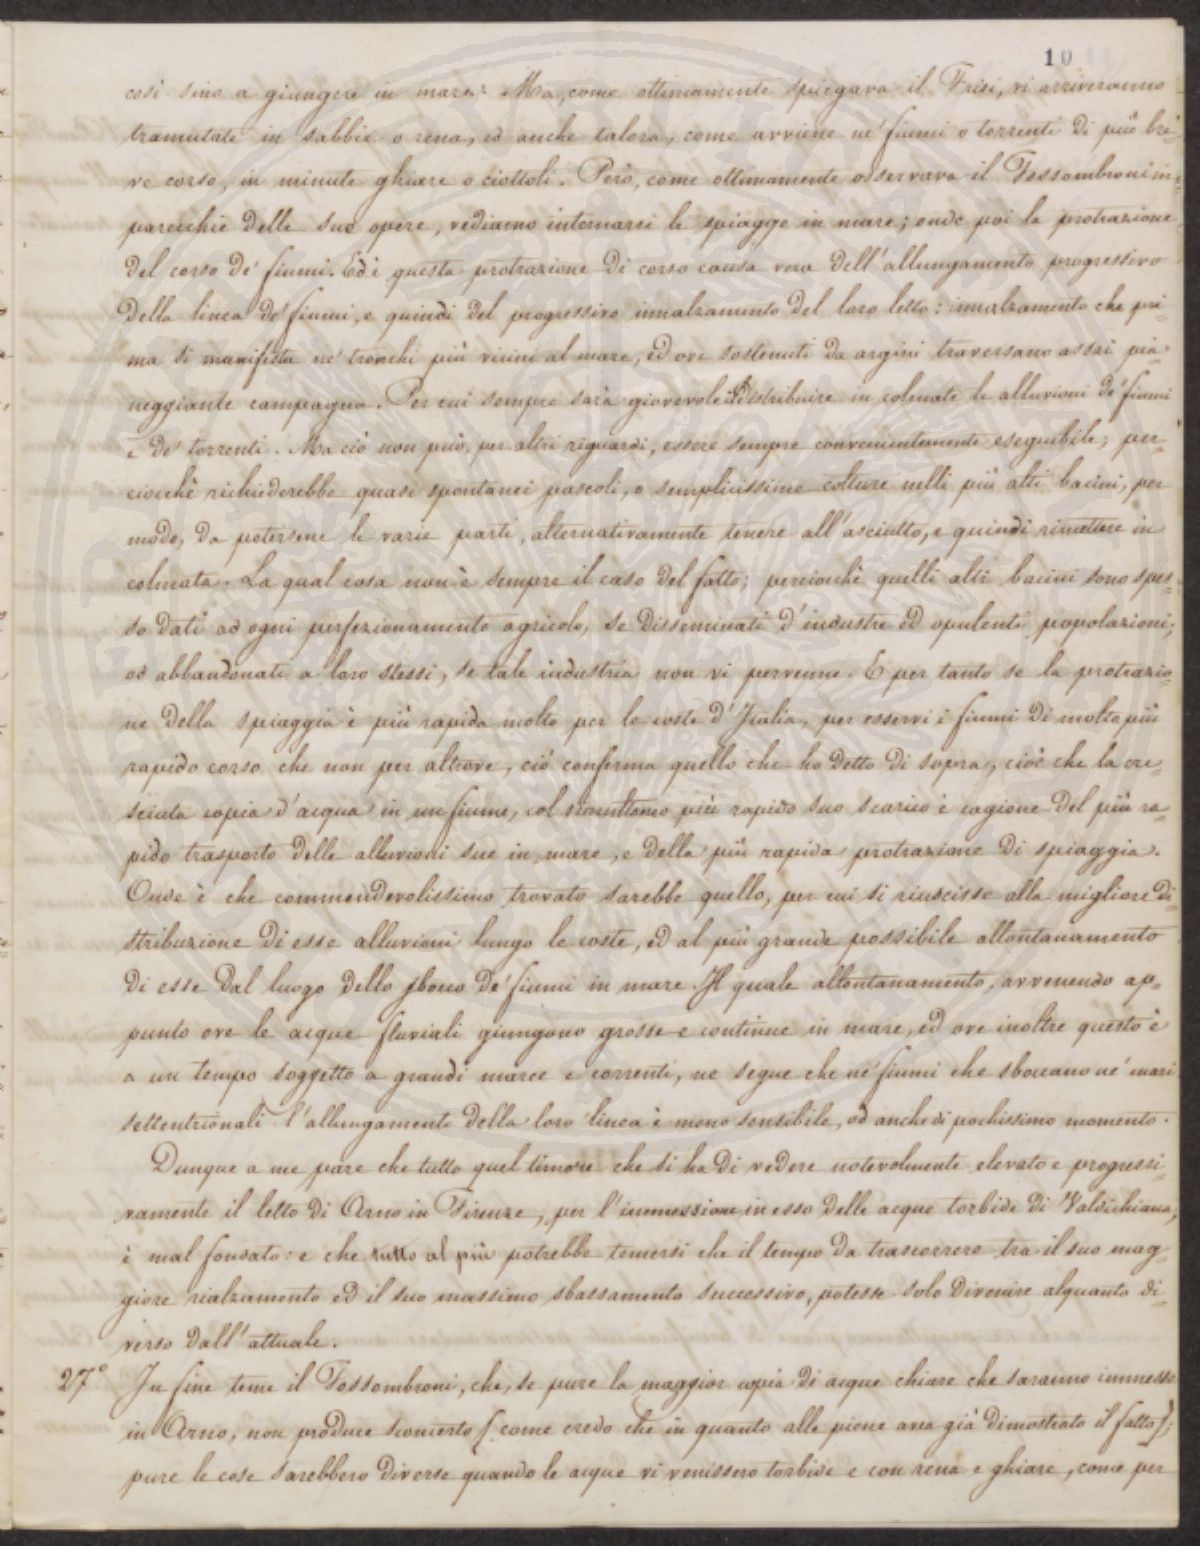 10
così sino a giungere in mare. Ma, come ottimamente spiegava il Frisi, vi arriveranno
tramutate in sabbie o rena, ed anche talora, come avviene ne' fiumi o torrenti di più bre=
ve corso, in minute ghiare o ciottoli. Però, come ottimamente osservava il Fossombroni in
parecchie delle sue opere, vediamo internarsi le spiagge in mare; onde poi la protrazione
del corso de' fiumi. Ed è questa protrazione di corso causa vera dell'allungamento progressivo
della linea de' fiumi, e quindi del progressivo innalzamento del loro letto: innalzamento che pri=
ma si manifesta ne' tronchi più vicini al mare, ed ove sostenuti da argini traversano assai pia=
neggiante campagna. Per cui sempre sarà giovevole il distribuire in colmate le alluvioni de' fiumi
e de' torrenti. Ma ciò non può, per altri riguardi, essere sempre convenientemente eseguibile; per=
ciocchè richiederebbe quasi spontanei pascoli, o semplicissime colture nelli più alti bacini, per
modo, da potersene le varie parti, alternativamente tenere all'asciutto, e quindi rimettere in
colmata. La qual cosa non è sempre il caso del fatto; perciocchè quelli alti bacini sono spes=
so dati ad ogni perfezionamento agricolo, se disseminati d'industre ed opulenti popolazioni;
od abbandonati a loro stessi, se tale industria non vi pervenne. E per tanto se la protrazio=
ne della spiaggia è più rapida molto per le coste d'Italia, per esservi i fiumi di molto più
rapido corso che non per altrove, ciò conferma quello che ho detto di sopra, cioè che la cre=
sciuta copia d'acqua in un fiume, col simultaneo più rapido suo scarico è cagione del più ra=
pido trasporto delle alluvioni sue in mare, e della più rapida protrazione di spiaggia.
Onde è che commendevolissimo trovato sarebbe quello, per cui si riuscisse alla migliore di=
stribuzione di esse alluvioni lungo le coste, ed al più grande possibile allontanamento
di esse dal luogo dello sbocco de' fiumi in mare. Il quale allontanamento, avvenendo ap=
punto ove le acque fluviali giungono grosse e continue in mare, ed ove inoltre questo è
a un tempo soggetto a grandi maree e correnti, ne segue che ne' fiumi che sboccano ne' mari
settentrionali l'allungamento della loro linea è meno sensibile, od anche di pochissimo momento.
Dunque a me pare che tutto quel timore che si ha di vedere notevolmente elevato e progressi=
vamente il letto di Arno in Firenze, per l'immessione in esso delle acque torbide di Valdichiana,
è mal fondato: e che tutto al più potrebbe temersi che il tempo da trascorrere tra il suo mag=
giore rialzamento ed il suo massimo sbassamento successivo, potesse solo divenire alquanto di=
verso dall'attuale.
27° In fine teme il Fossombroni, che, se pure la maggior copia di acque chiare che saranno immesse
in Arno, non produce sconcerto (come credo che in quanto alle piene avea già dimostrato il fatto);
pure le cose sarebbero diverse quando le acque vi venissero torbide e con rena e ghiare, come per